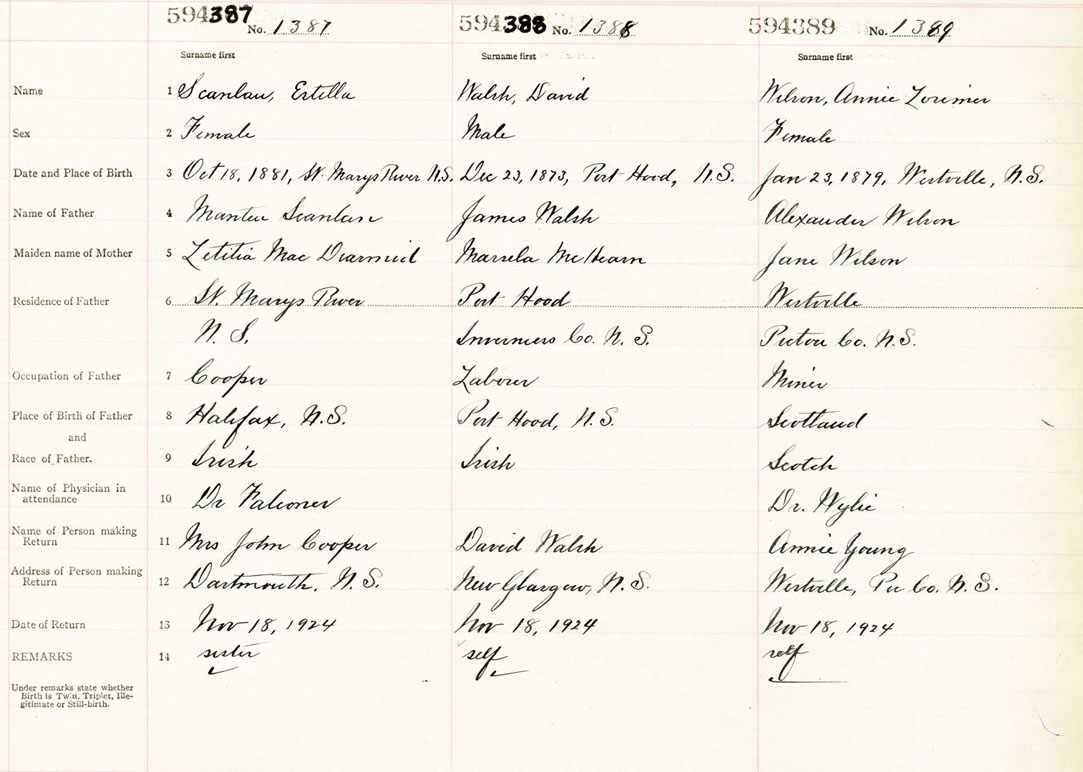 594387 No. 1387 594388 No. 1388 594389 No. 1389
Surname first Surname first Surname first
Name 1 Scanlan, Estella Walsh, David Wilson, Annie Lorimer
Sex 2 Female Male Female
Date and Place of Birth 3 Oct 18, 1881, St. Marys River N.S. Dec 23, 1873, Port Hood, N.S. Jan 23, 1879, Westville, N.S.
Name of Father 4 Scanlan James Walsh Alexander Wilson
Maiden name of Mother 5 Letitia Mac Diarmid Marsela McHearn Jane Wilson
Residence of Father 6 St. Marys River Port Hood Westville
N. S. Inverness Co. N. S. Pictou Co. N.S.
Occupation of Father 7 Cooper Labour Miner
Place of Birth of Father 8 Halifax, N.S. Port Hood, N.S. Scotland
and
Race of Father. 9 Irish Irish Scotch
Name of Physician in
attendance 10 Dr Falconer Dr. Wylie
Name of Person making
Return 11 Mrs John Cooper David Walsh Annie Young
Address of Person making
Return 12 Dartmouth. N.S. New Glasgow, N.S. Westville, Pic Co. N.S.
Date of Return 13 Nov 18, 1924 Nov 18, 1924 Nov 18, 1924
REMARKS 14 sister self self
Under remarks state whether
Birth is Twin, Triplet, Ille-
gitimate or Still-birth.